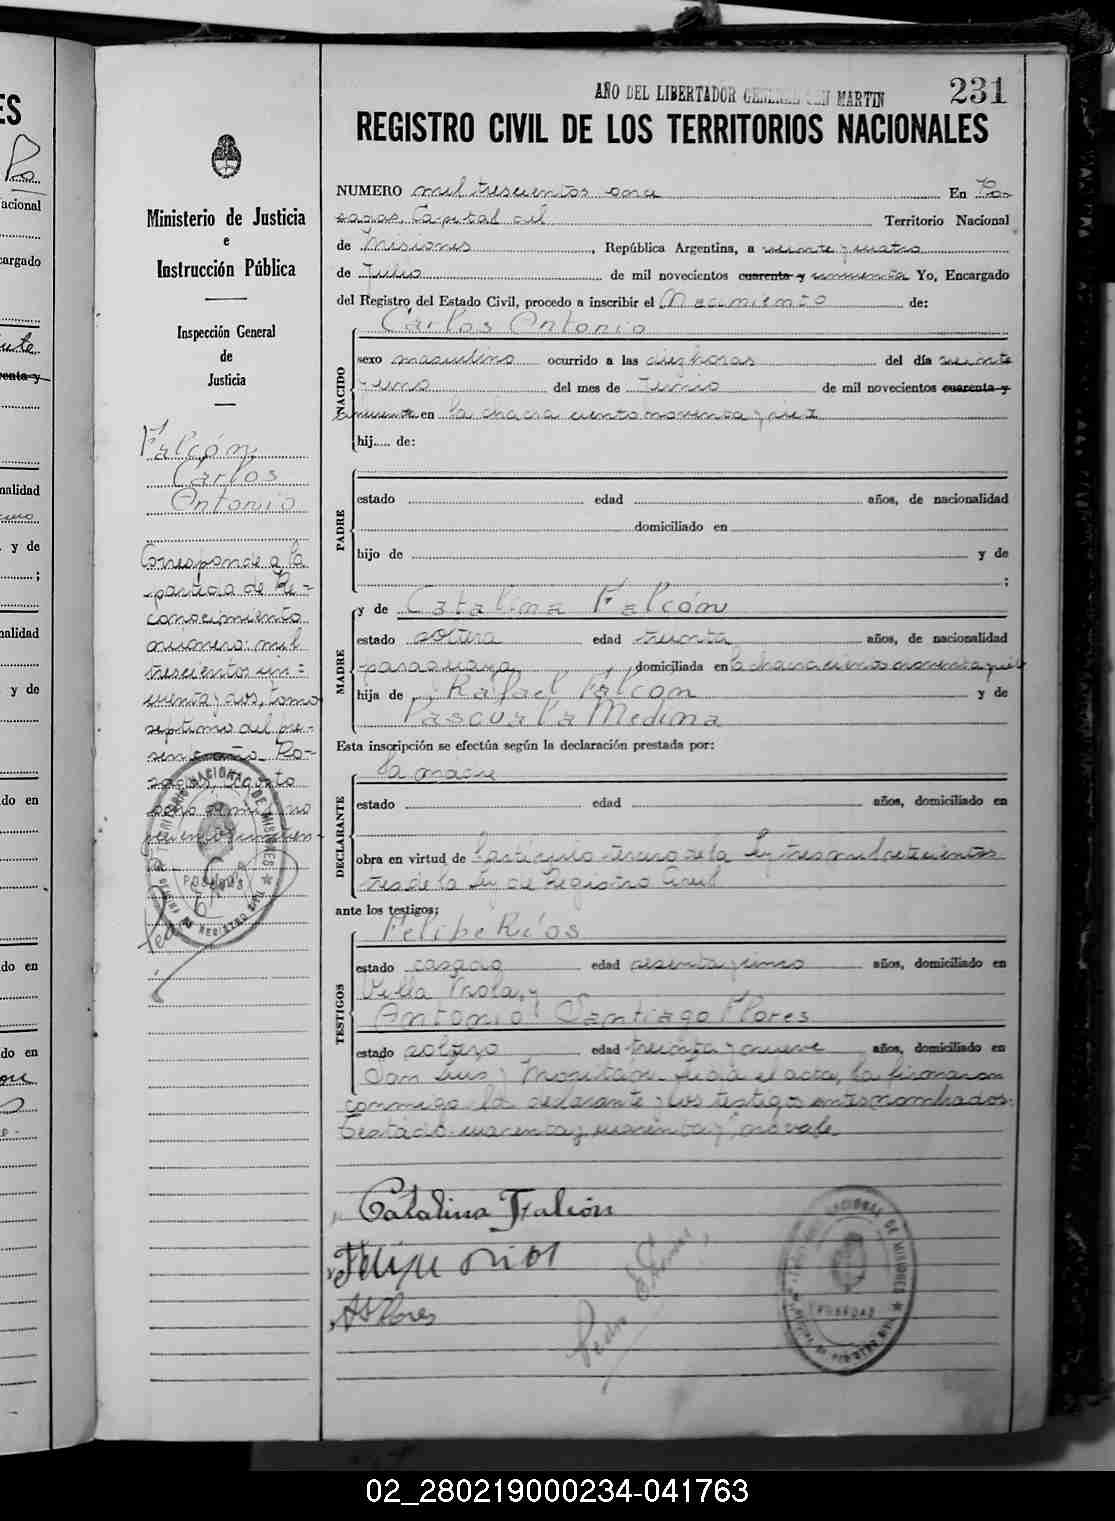 231
AÑO DEL LIBERTADOR GENERAL SAN MARTIN
REGISTRO CIVIL DE LOS TERRITORIOS NACIONALES
Ministerio de Justicia
e
Instrucción Pública
Inspección General
de
Justicia
Falcón,
Carlos
Antonio
Corresponde a la
partida de Re-
conocimiento
número: mil
trescientos cin-
cuenta y dos, tomo
septimo del pre-
sente año. Po-
sadas, Agosto
de mil no
NUMERO mil trescientos once En Po
sadas, Capital del Territorio Nacional
de Misiones, República Argentina, a veinte y cuatro
de Julio de mil novecientos cuarenta y cincuenta Yo, Encargado
del Registro del Estado Civil, procedo a inscribir el Nacimiento de:
Carlos Antonio
NACIDO
sexo masculino ocurrido a las diez horas del día veinte
y uno del mes de Junio de mil novecientos cuarenta y
cincuenta en la chacra ciento noventa y diez
hij.... de:
PADRE
estado edad años, de nacionalidad
domiciliado en
hijo de y de
;
MADRE
y de Catalina Falcón
estado soltera edad treinta años, de nacionalidad
paraguaya, domiciliada en la chacra ciento noventa y diez
hija de Rafael Falcón y de
Pascuala Medina
Esta inscripción se efectúa según la declaración prestada por:
DECLARANTE
la madre
estado edad años, domiciliado en
obra en virtud de l'artículo tercero de la Ley tres mil setecientos
tres de la Ley de Registro Civil
ante los testigos;
TESTIGOS
Felipe Ríos
estado casado edad sesenta y cinco años, domiciliado en
Villa Mola, y
Antonio Santiago Flores
estado soltero edad treinta y nueve años, domiciliado en
San Luis y Leida el acta, la firmaron
conmigo la declarante y los testigos antes nombrados.
Testado: cuarenta y, cuarenta y, no vale.
Catalina Falcón
Felipe Rios
AS Flores
Pedro
02_280219000234-041763